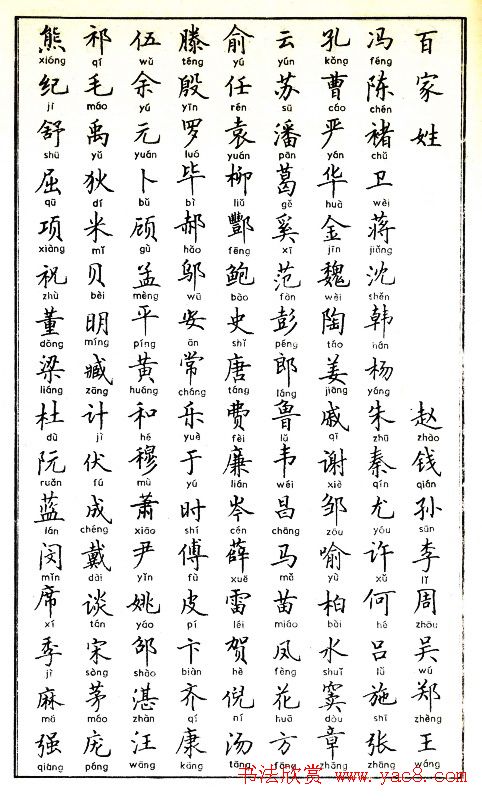 百家姓
赵钱孙李周吴郑王
zhào qián sūn lǐ zhōu wú zhèng wáng
冯陈褚卫蒋沈韩杨朱秦尤许何吕施张
féng chén chǔ wèi jiǎng shěn hán yáng zhū qín yóu xǔ hé lǚ shī zhāng
孔曹严华金魏陶姜戚谢邹喻柏水窦章
kǒng cáo yán huà jīn wèi táo jiāng qī xiè zōu yù bài shuǐ dòu zhāng
云苏潘葛奚范彭郎鲁韦昌马苗凤花方
yún sū pān gě xī fàn péng láng lǔ wéi chāng mǎ miáo fèng huā fāng
俞任袁柳酆鲍史唐费廉岑薛雷贺倪汤
yú rén yuán liǔ fēng bào shǐ táng fèi lián cén xuē léi hè ní tāng
滕殷罗毕郝邬安常乐于时傅皮卞齐康
téng yīn luó bì hǎo wū ān cháng yuè yú shí fù pí biàn qí kāng
伍余元卜顾孟平黄和穆萧尹姚邵湛汪
wǔ yú yuán bǔ gù mèng píng huáng hé mù xiāo yǐn yáo shào zhàn wāng
祁毛禹狄米贝明臧计伏成戴谈宋茅庞
qí máo yǔ dí mǐ bèi míng zāng jì fú chéng dài tán sòng máo páng
熊纪舒屈项祝董梁杜阮蓝闵席季麻强
xióng jǐ shū qū xiàng zhù dǒng liáng dù ruǎn lán mǐn xí jì má qiáng
书法欣赏 www.yac8.com